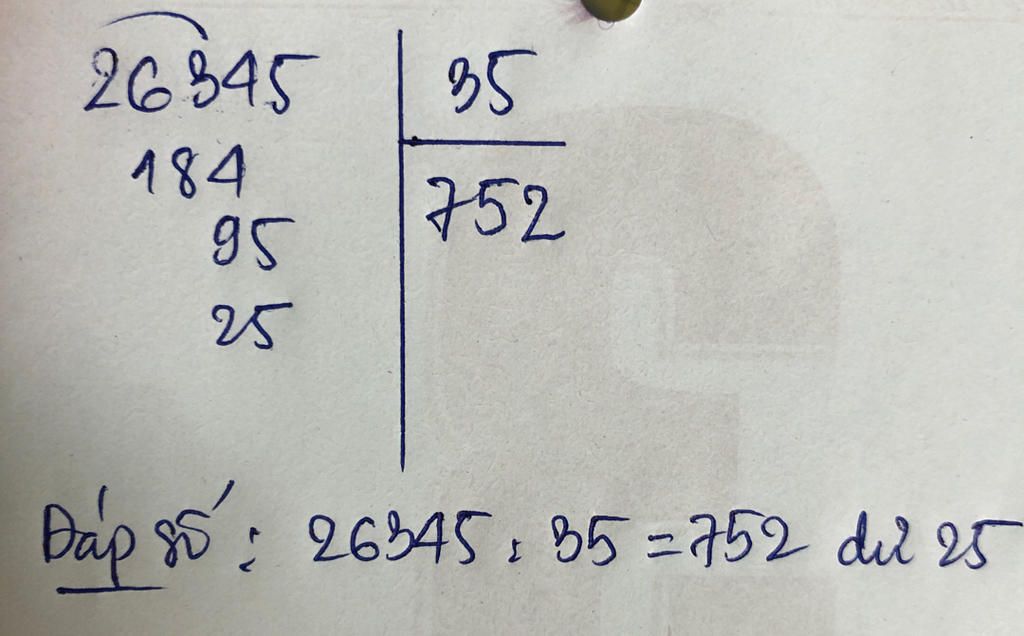 26345 35
184 752
95
25
Đáp số: 26345 : 35 = 752 dư 25